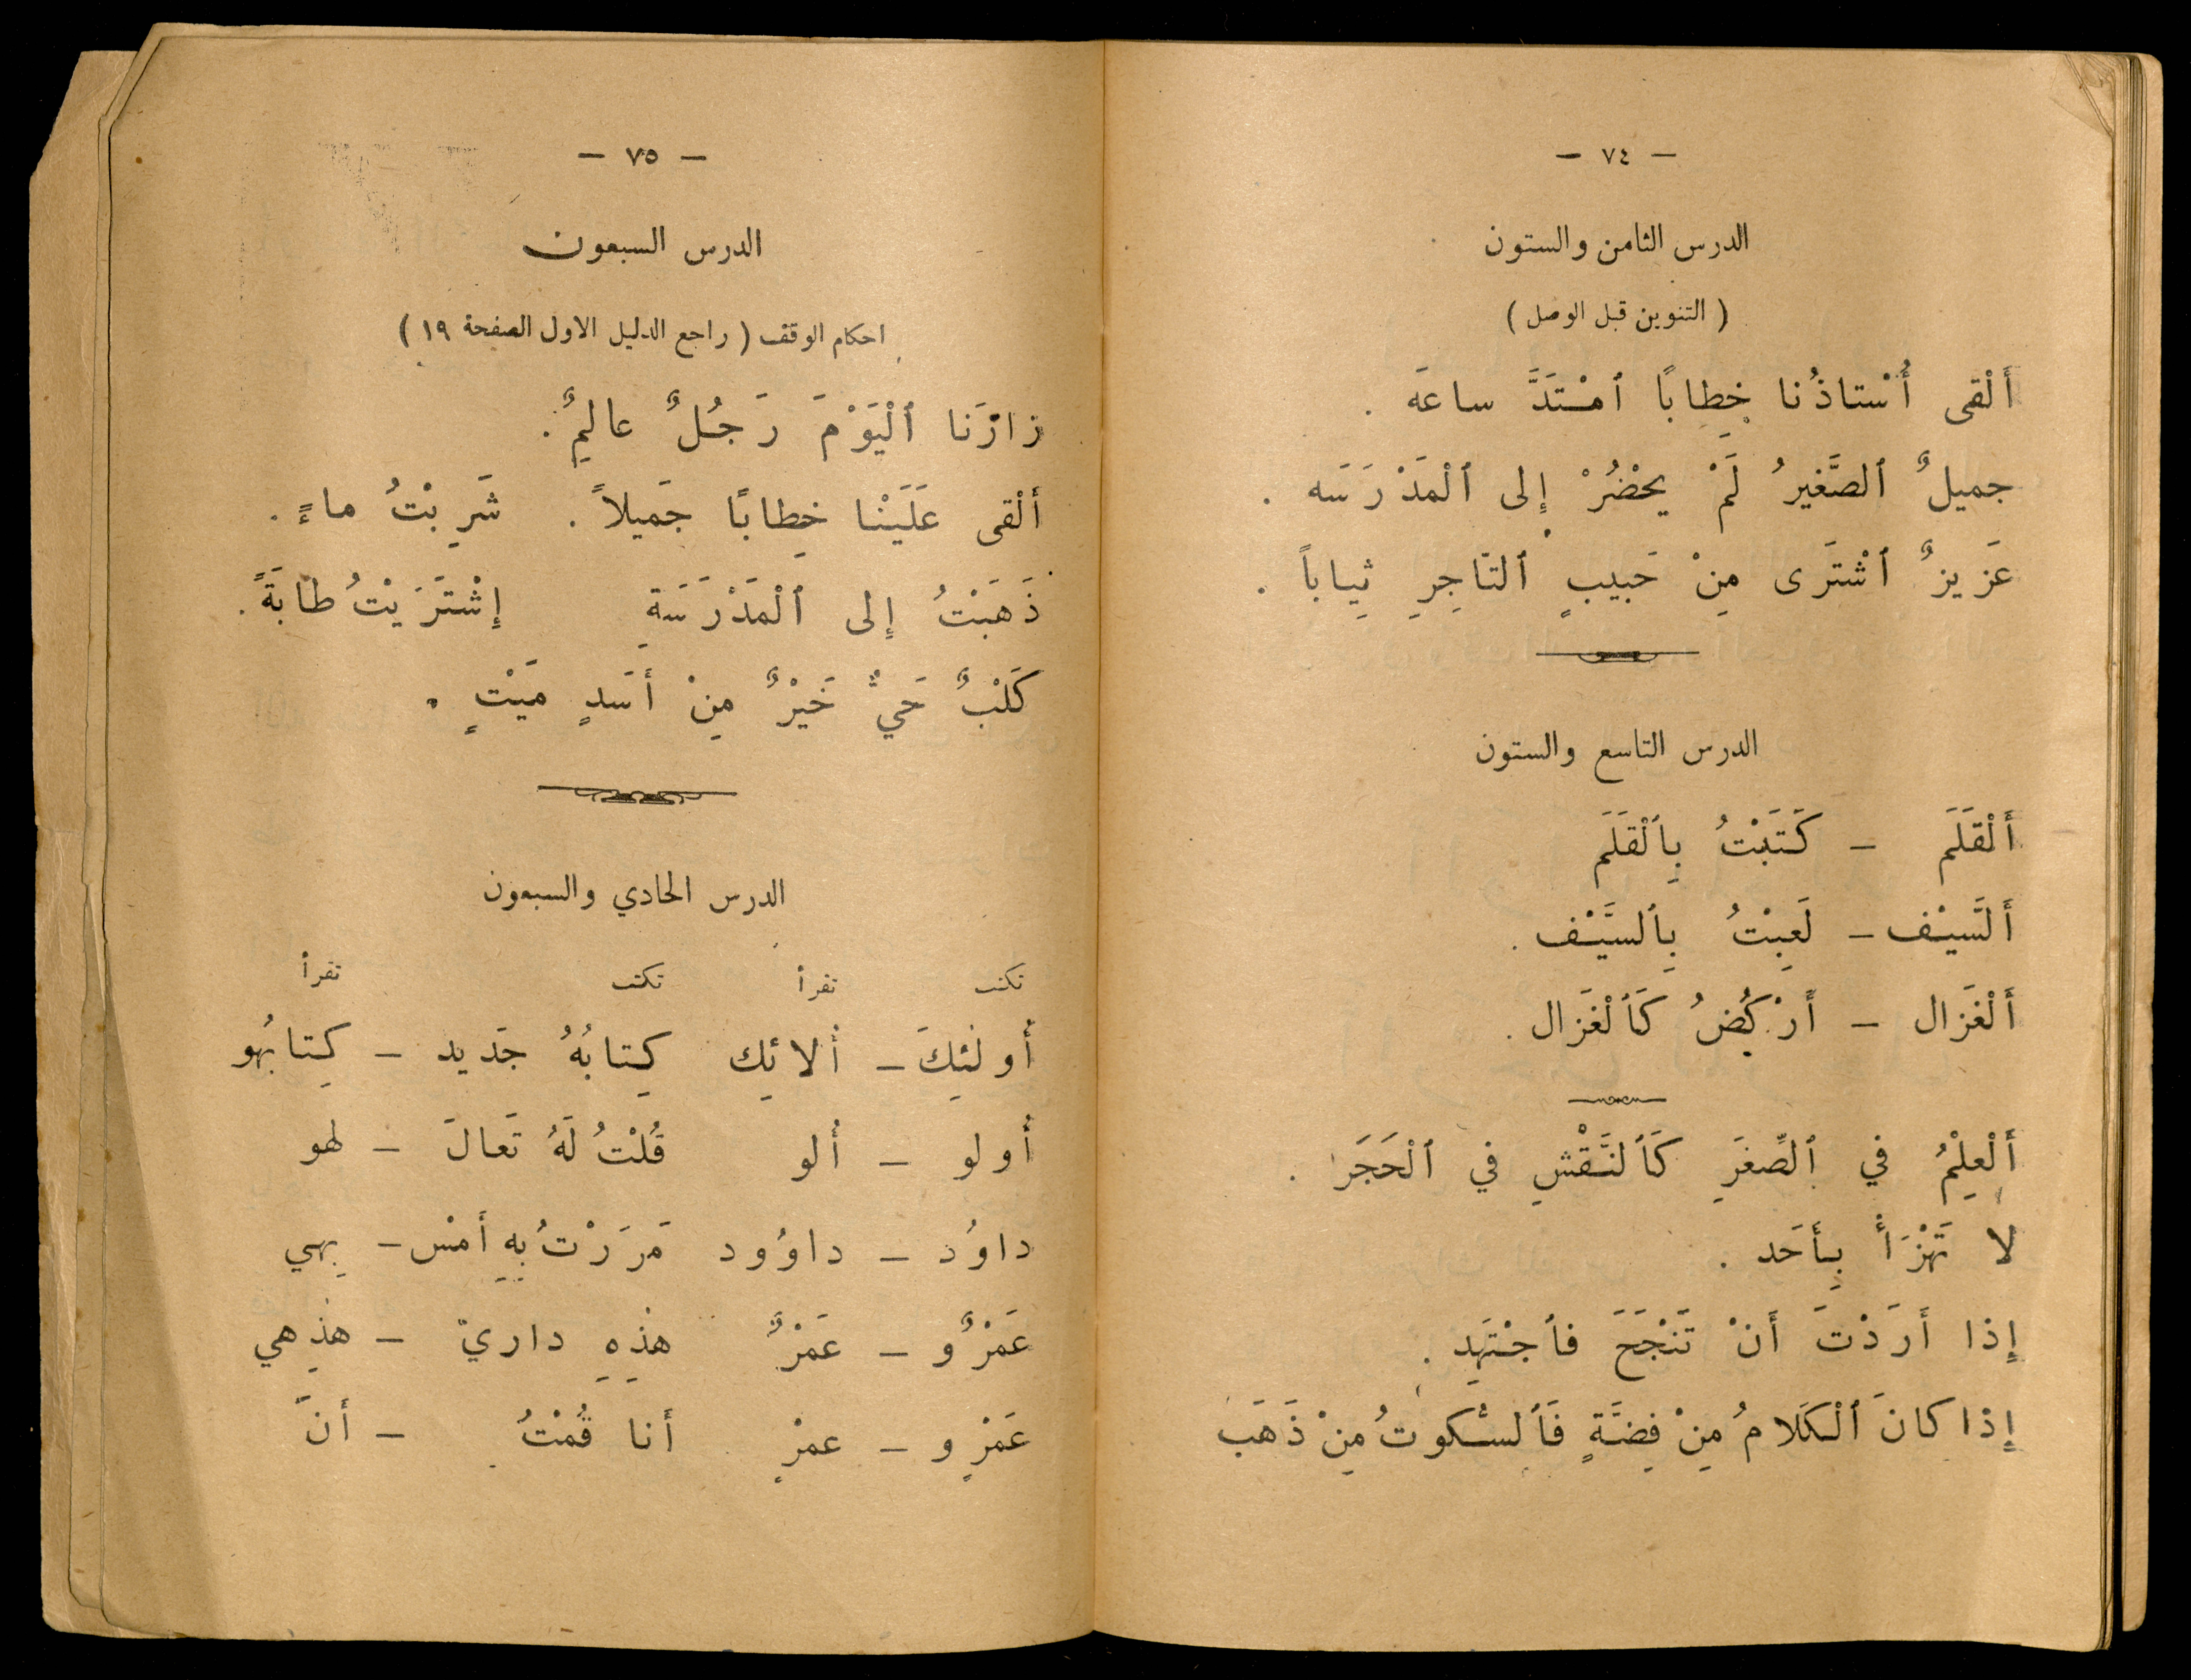 — ٧٤ —
الدرس الثامن والستون
( التنوين قبل الوصل )
أَلْقى أُسْتاذُنا خِطابًا ٱمْتَدَّ ساعَه .
جميلٌ ٱلصَّغيرُ لَمْ يحْضُرْ إِلى ٱلْمَدْرَسَه .
عَزيزٌ ٱشْتَرَى مِنْ حَبيبٍ ٱلتّاجِرِ ثِياباً .
الدرس التاسع والستون
أَلْقَلَم – كَتَبْتُ بِٱلْقَلَم
أَلسَّيْف – لَعِبْتُ بِٱلسَّيْف .
أَلْغَزال – أَرْكُضُ كَٱلْغَزال .
أَلْعِلْمُ في ٱلصِّغَرِ كَٱلنَّقْشِ في ٱلْحَجَر .
لا تَهْزَأْ بِأَحَد .
إِذا أَرَدْتَ أَنْ تَنْجَحَ فٱجْتَهِد .
إِذا كانَ ٱلْكَلامُ مِنْ فِضَّةٍ فَٱلسُّكوتُ مِنْ ذَهَب
— ٧٥ —
الدرس السبعون
احكام الوقف ( راجع الدليل الاول الصفحة ١٩ )
زارَنا ٱلْيَوْمَ رَجُلٌ عالِمٌ .
أَلْقى عَلَيْنا خِطابًا جَميلاً . شَرِبْتُ ماءً .
ذَهَبْتُ إِلى ٱلْمَدْرَسَةِ إِشْتَرَيْتُ طابَةً .
كَلْبٌ حَيٌّ خَيْرٌ مِنْ أَسَدٍ مَيْتٍ .
الدرس الحادي والسبعون
تكتب تقرأ تكتب تقرأ
أُولٰئِكَ – أُلائِك كِتابُهُ جَديد – كِتابُهو
أُولو – أُلو قُلْتُ لَهُ تَعالَ – لهو
داوُد – داوُود مَرَرْتُ بِهِ أَمْس – بِهي
عَمْرٌو – عَمْرٌ هذِهِ داريّ – هذِهي
عَمْرٍو – عمْرٍ أَنا قُمْتُ – أَنَ